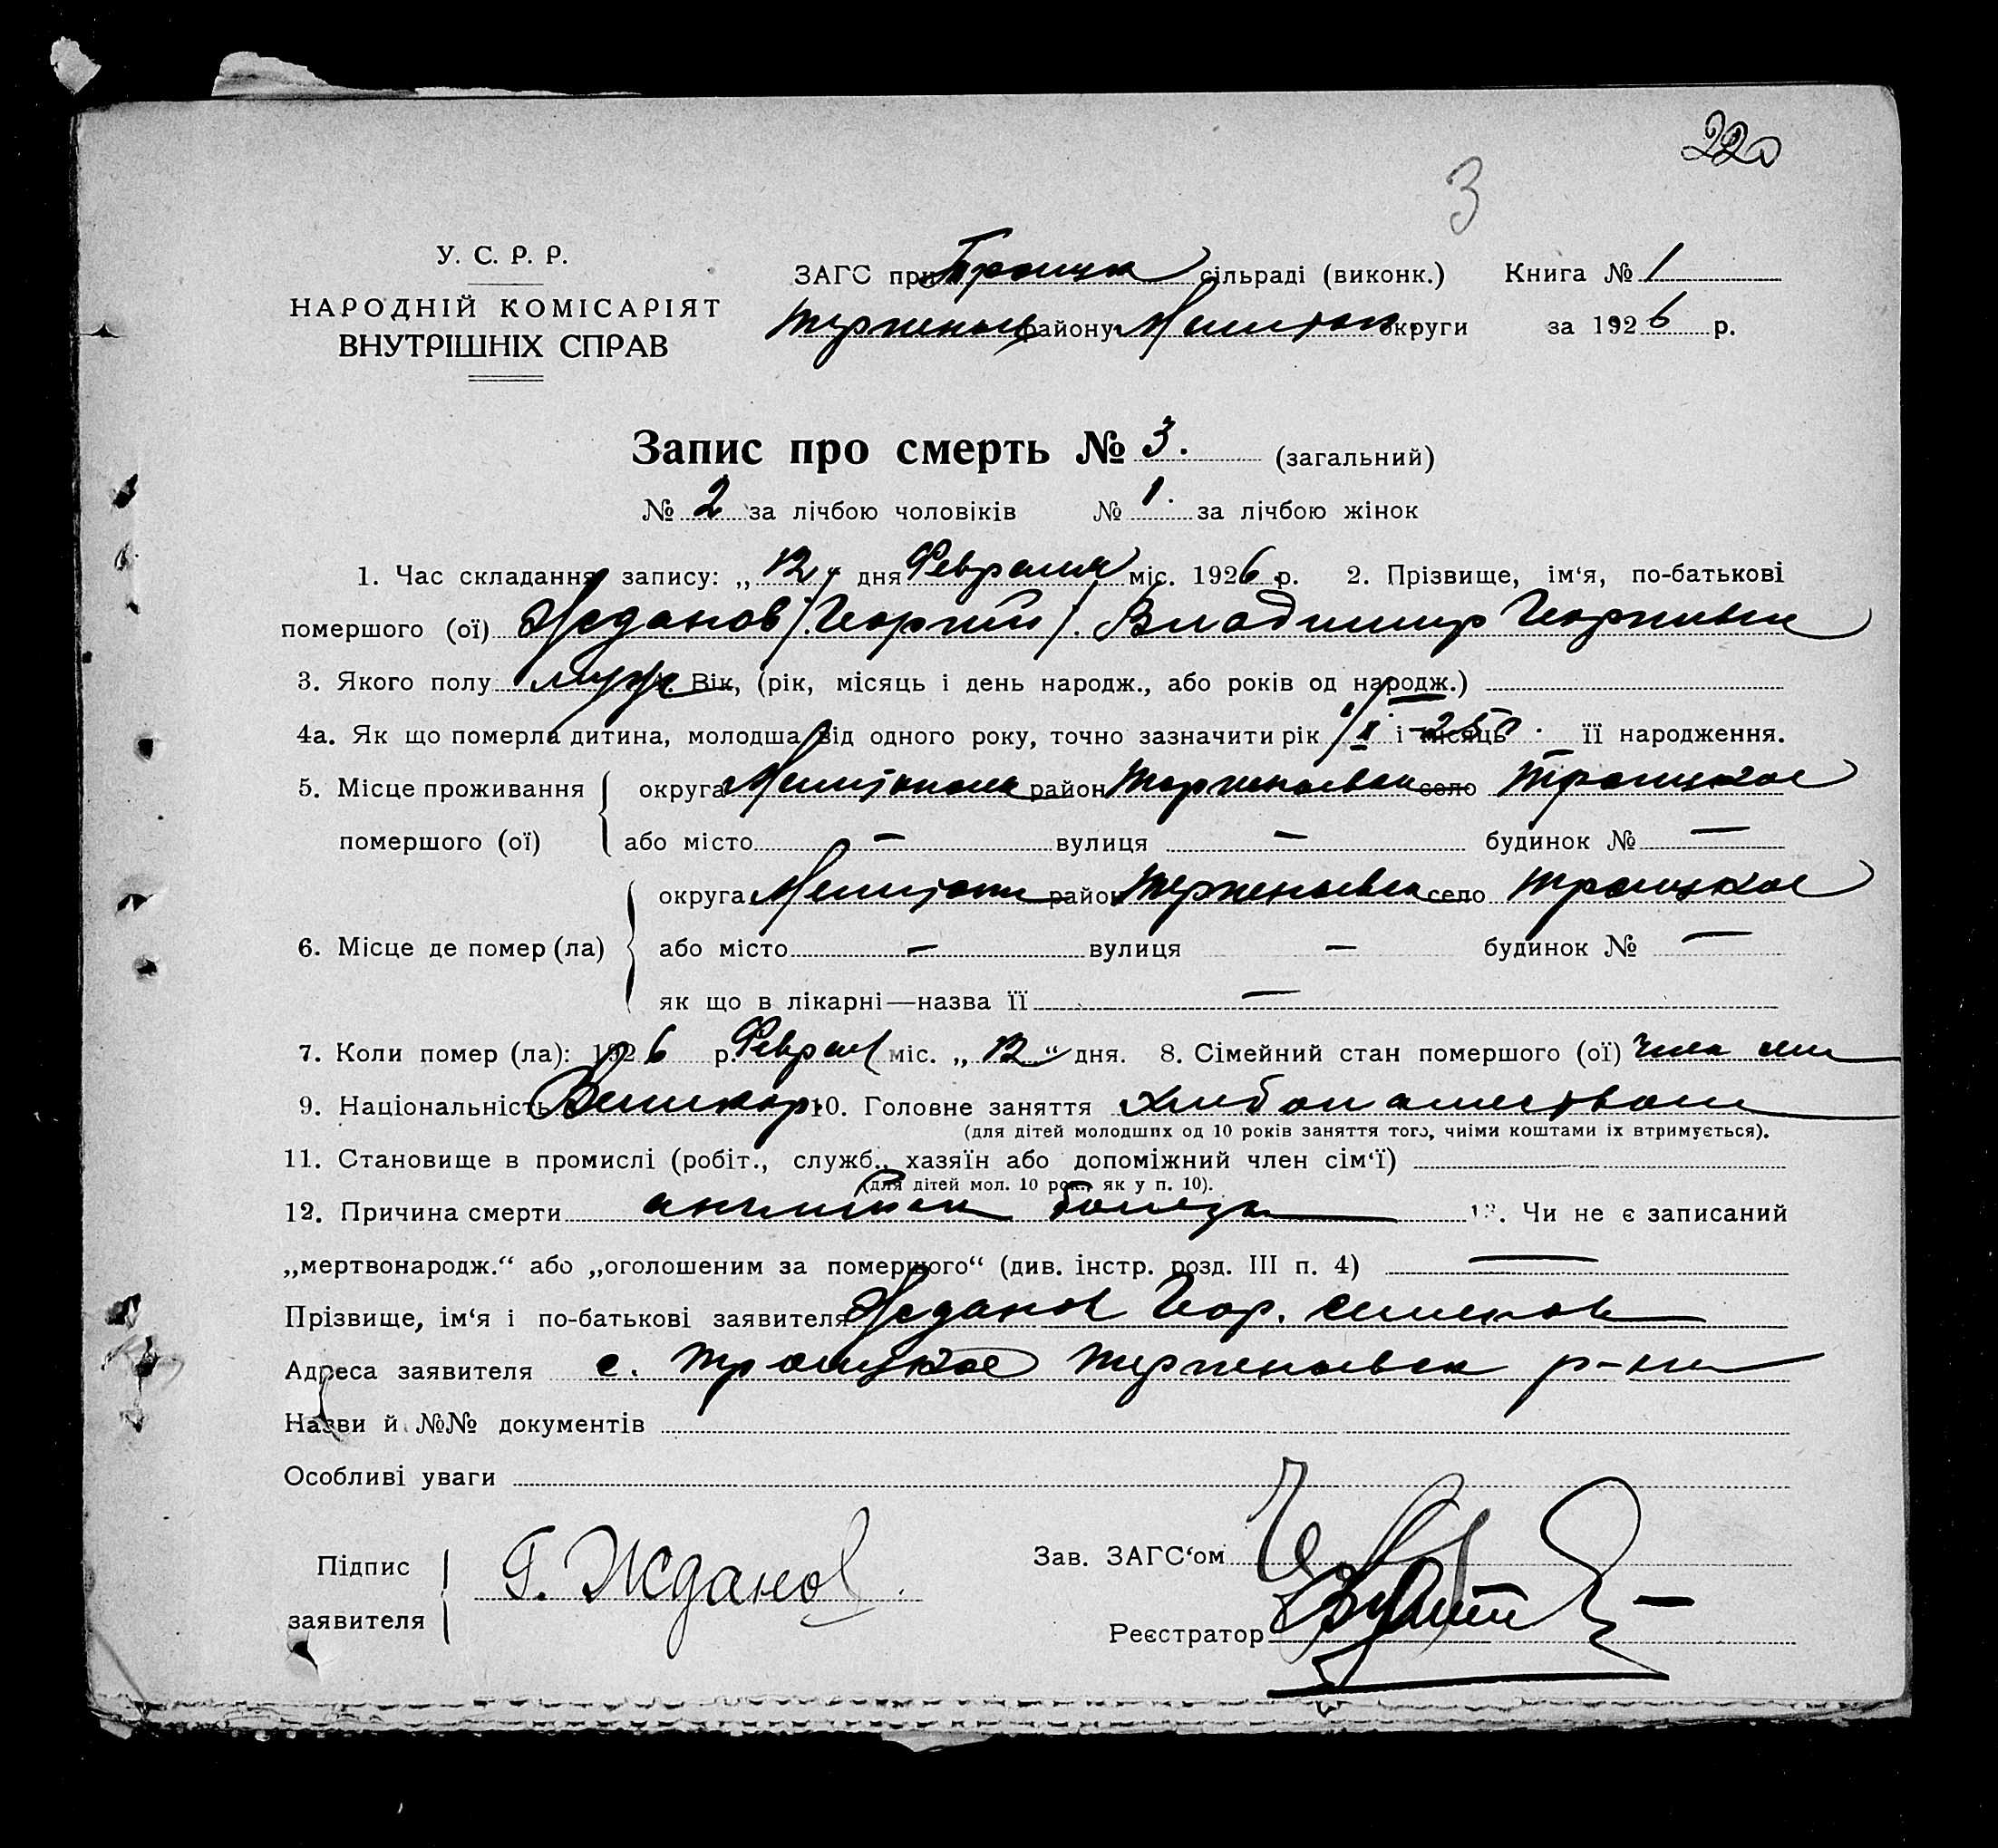 220
3
У. С. Р. Р.
НАРОДНІЙ КОМІСАРІЯТ
ВНУТРІШНІХ СПРАВ
ЗАГС при Троицк сільраді (виконк.) Книга № 1
району Мелитоп округи за 1926 р.
Запис про смерть № 3. (загальний)
№ 2 за лічбою чоловіків № 1. за лічбою жінок
1. Час складання запису: „12“ дня Февраля міс. 1926 р. 2. Прізвище, ім‘я, по-батькові
помершого (ої) Жданов /Георгий/. Владимир Георгиевич
3. Якого полу муж. Вік, (рік, місяць і день народж., або років од народж.)
4а. Як що померла дитина, молодша від одного року, точно зазначити рік і місяць її народження.
5. Місце проживання округа район село Троицкое
помершого (ої) або місто — вулиця — будинок № —
округа Мелитоп район село Троицкое
6. Місце де помер (ла) або місто — вулиця — будинок № —
як що в лікарні—назва її —
7. Коли помер (ла): 1926 р. Феврал міс. „12“ дня. 8. Сімейний стан помершого (ої) член
9. Національність Великор. 10. Головне заняття хлебопашеством
(для дітей молодших од 10 років заняття того, чиїми коштами їх втримується).
11. Становище в промислі (робіт., служб., хазяїн або допоміжний член сім‘ї)
(для дітей мол. 10 рок., як у п. 10).
12. Причина смерти английск болезн 13. Чи не є записаний
„мертвонародж.“ або „оголошеним за помершого“ (див. інстр. розд. III п. 4) —
Прізвище, ім‘я і по-батькові заявителя Жданов Геор.
Адреса заявителя с. Троицкое р-на
Назви й №№ документів
Особливі уваги
Підпис
заявителя
Г. Жданов
Зав. ЗАГС‘ом
Реєстратор